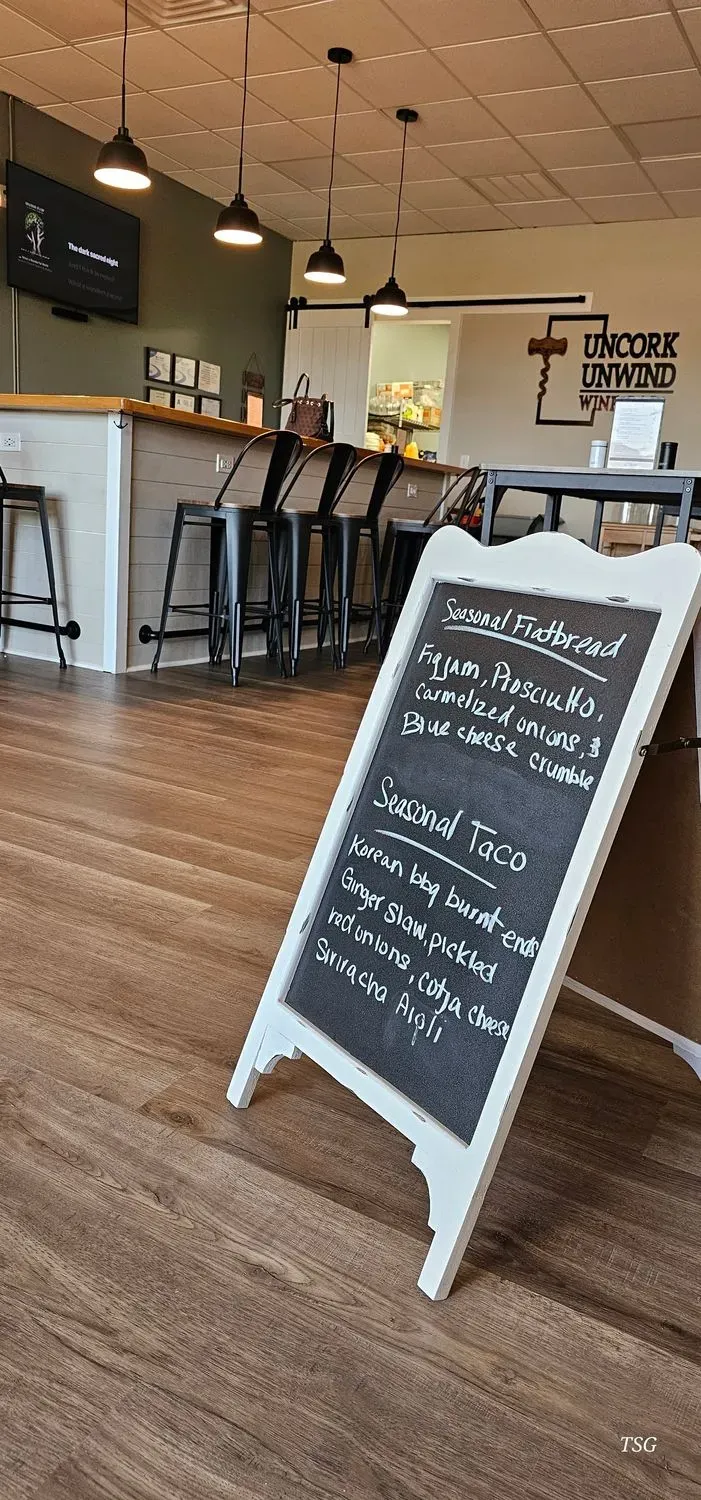 The dark sacred night
UNCORK
UNWIND
Seasonal Flatbread
Fig jam, Prosciutto,
carmelized onions, &
Blue cheese crumble
Seasonal Taco
Korean bbq burnt-ends
Ginger slaw, pickled
red onions, cotja cheese
Sriracha Aioli
TSG